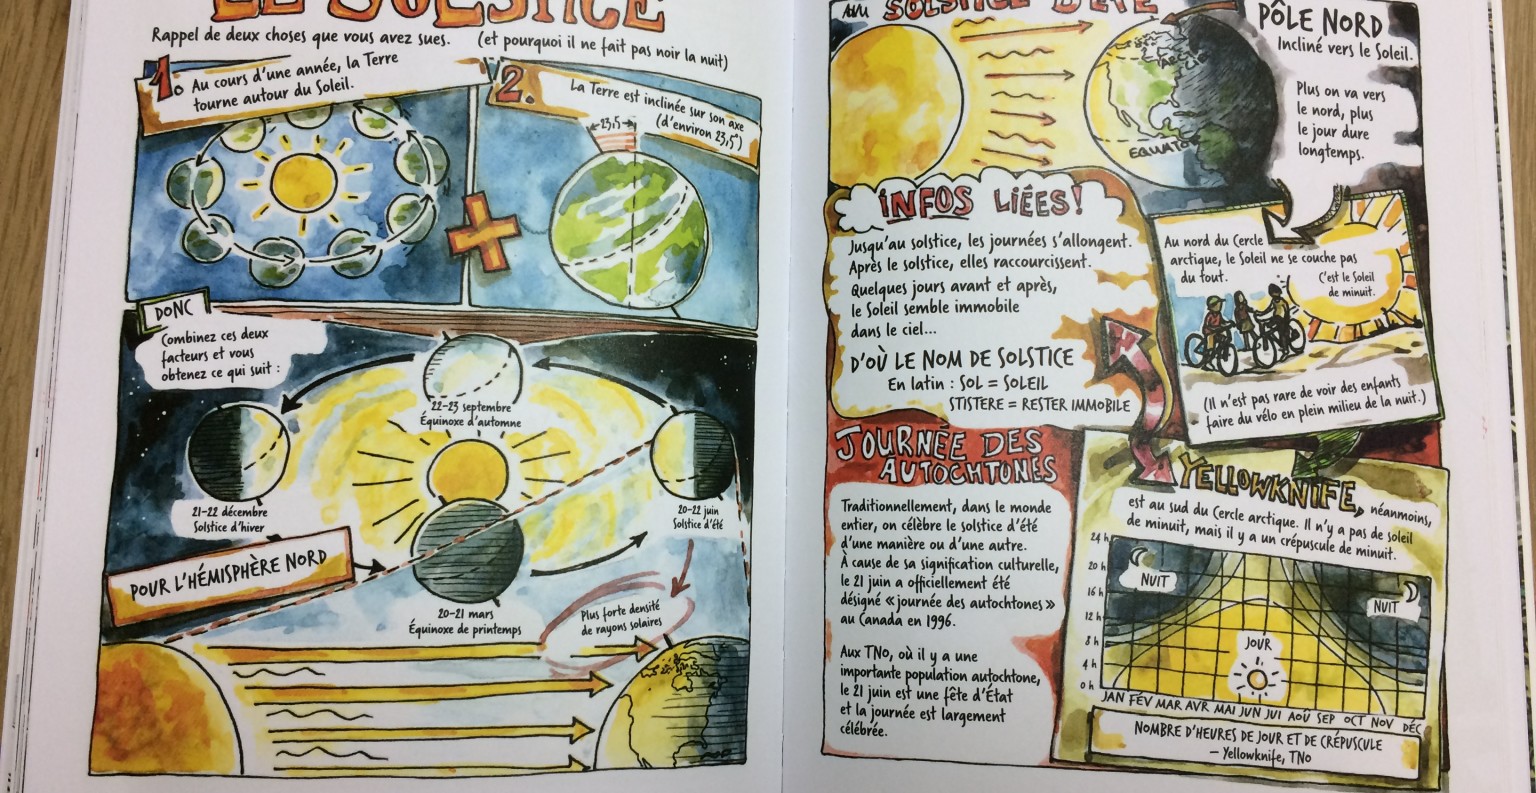 LE SOLSTICE
Rappel de deux choses que vous avez sues.
(et pourquoi il ne fait pas noir la nuit)
1. Au cours d'une année, la Terre
tourne autour du Soleil.
2. La Terre est inclinée sur son axe
(d'environ 23,5°)
23,5°
DONC
Combinez ces deux
facteurs et vous
obtenez ce qui suit :
22-23 septembre
Équinoxe d'automne
21-22 décembre
Solstice d'hiver
20-22 juin
Solstice d'été
POUR L'HÉMISPHÈRE NORD
20-21 mars
Équinoxe de printemps
Plus forte densité
de rayons solaires
AU SOLSTICE D'ÉTÉ
PÔLE NORD
Incliné vers le Soleil.
Plus on va vers
le nord, plus
le jour dure
longtemps.
EQUATOR
INFOS LIÉES!
Jusqu'au solstice, les journées s'allongent.
Après le solstice, elles raccourcissent.
Quelques jours avant et après,
le Soleil semble immobile
dans le ciel...
D'OÙ LE NOM DE SOLSTICE
En latin : SOL = SOLEIL
STISTERE = RESTER IMMOBILE
Au nord du Cercle
arctique, le Soleil ne se couche pas
du tout.
C'est le Soleil
de minuit.
(Il n'est pas rare de voir des enfants
faire du vélo en plein milieu de la nuit.)
JOURNÉE DES
AUTOCHTONES
Traditionnellement, dans le monde
entier, on célèbre le solstice d'été
d'une manière ou d'une autre.
À cause de sa signification culturelle,
le 21 juin a officiellement été
désigné « journée des autochtones »
au Canada en 1996.
Aux TNo, où il y a une
importante population autochtone,
le 21 juin est une fête d'État
et la journée est largement
célébrée.
YELLOWKNIFE, néanmoins,
est au sud du Cercle arctique. Il n'y a pas de soleil
de minuit, mais il y a un crépuscule de minuit.
24 h
20 h
16 h
12 h
8 h
4 h
0 h
NUIT
NUIT
JOUR
JAN FÉV MAR AVR MAI JUN JUI AOÛ SEP OCT NOV DÉC
NOMBRE D'HEURES DE JOUR ET DE CRÉPUSCULE
– Yellowknife, TNo